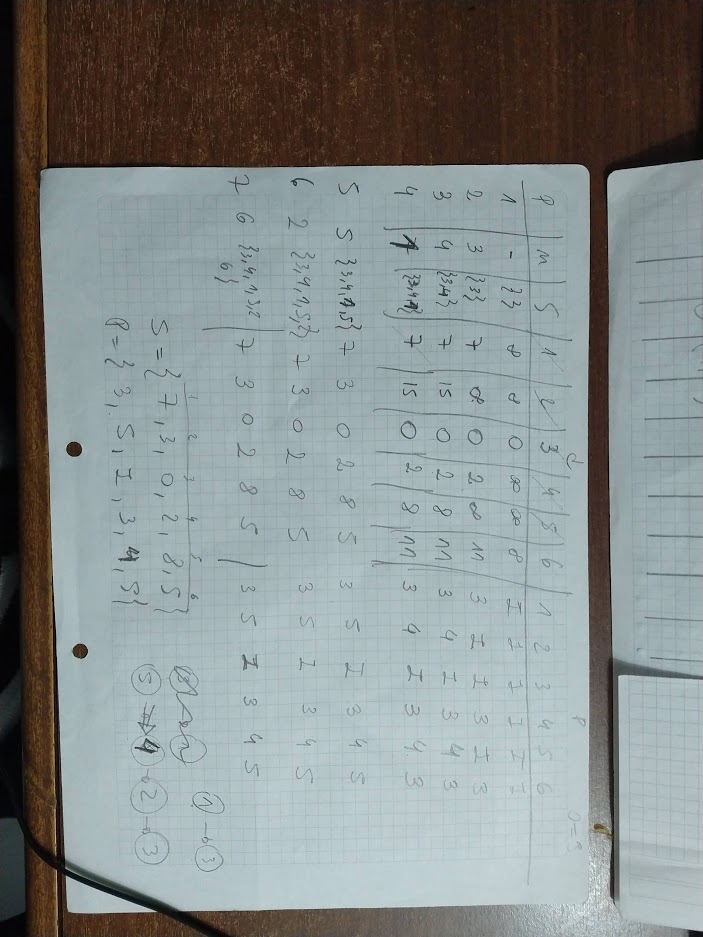 d P
P m S 1 2 3 4 5 6 1 2 3 4 5 6
1 - {} ∞ ∞ 0 ∞ ∞ ∞ I I I I I I
2 3 {3} 7 ∞ 0 2 ∞ 11 3 I I 3 I 3
3 4 {3,4} 7 15 0 2 8 11 3 4 I 3 4 3
4 1 {3,4,1} 7 15 0 2 8 11 3 4 I 3 4 3
5 5 {3,4,1,5} 7 3 0 2 8 5 3 5 I 3 4 5
6 2 {3,4,1,5,2} 7 3 0 2 8 5 3 5 I 3 4 5
7 6 {3,4,1,5,2 7 3 0 2 8 5 3 5 I 3 4 5
6}
1 → 3
1 2 3 4 5 6
S = {7, 3, 0, 2, 8, 5}
P = {3, 5, I, 3, 4, 5}
5 → 4 → 2 → 3